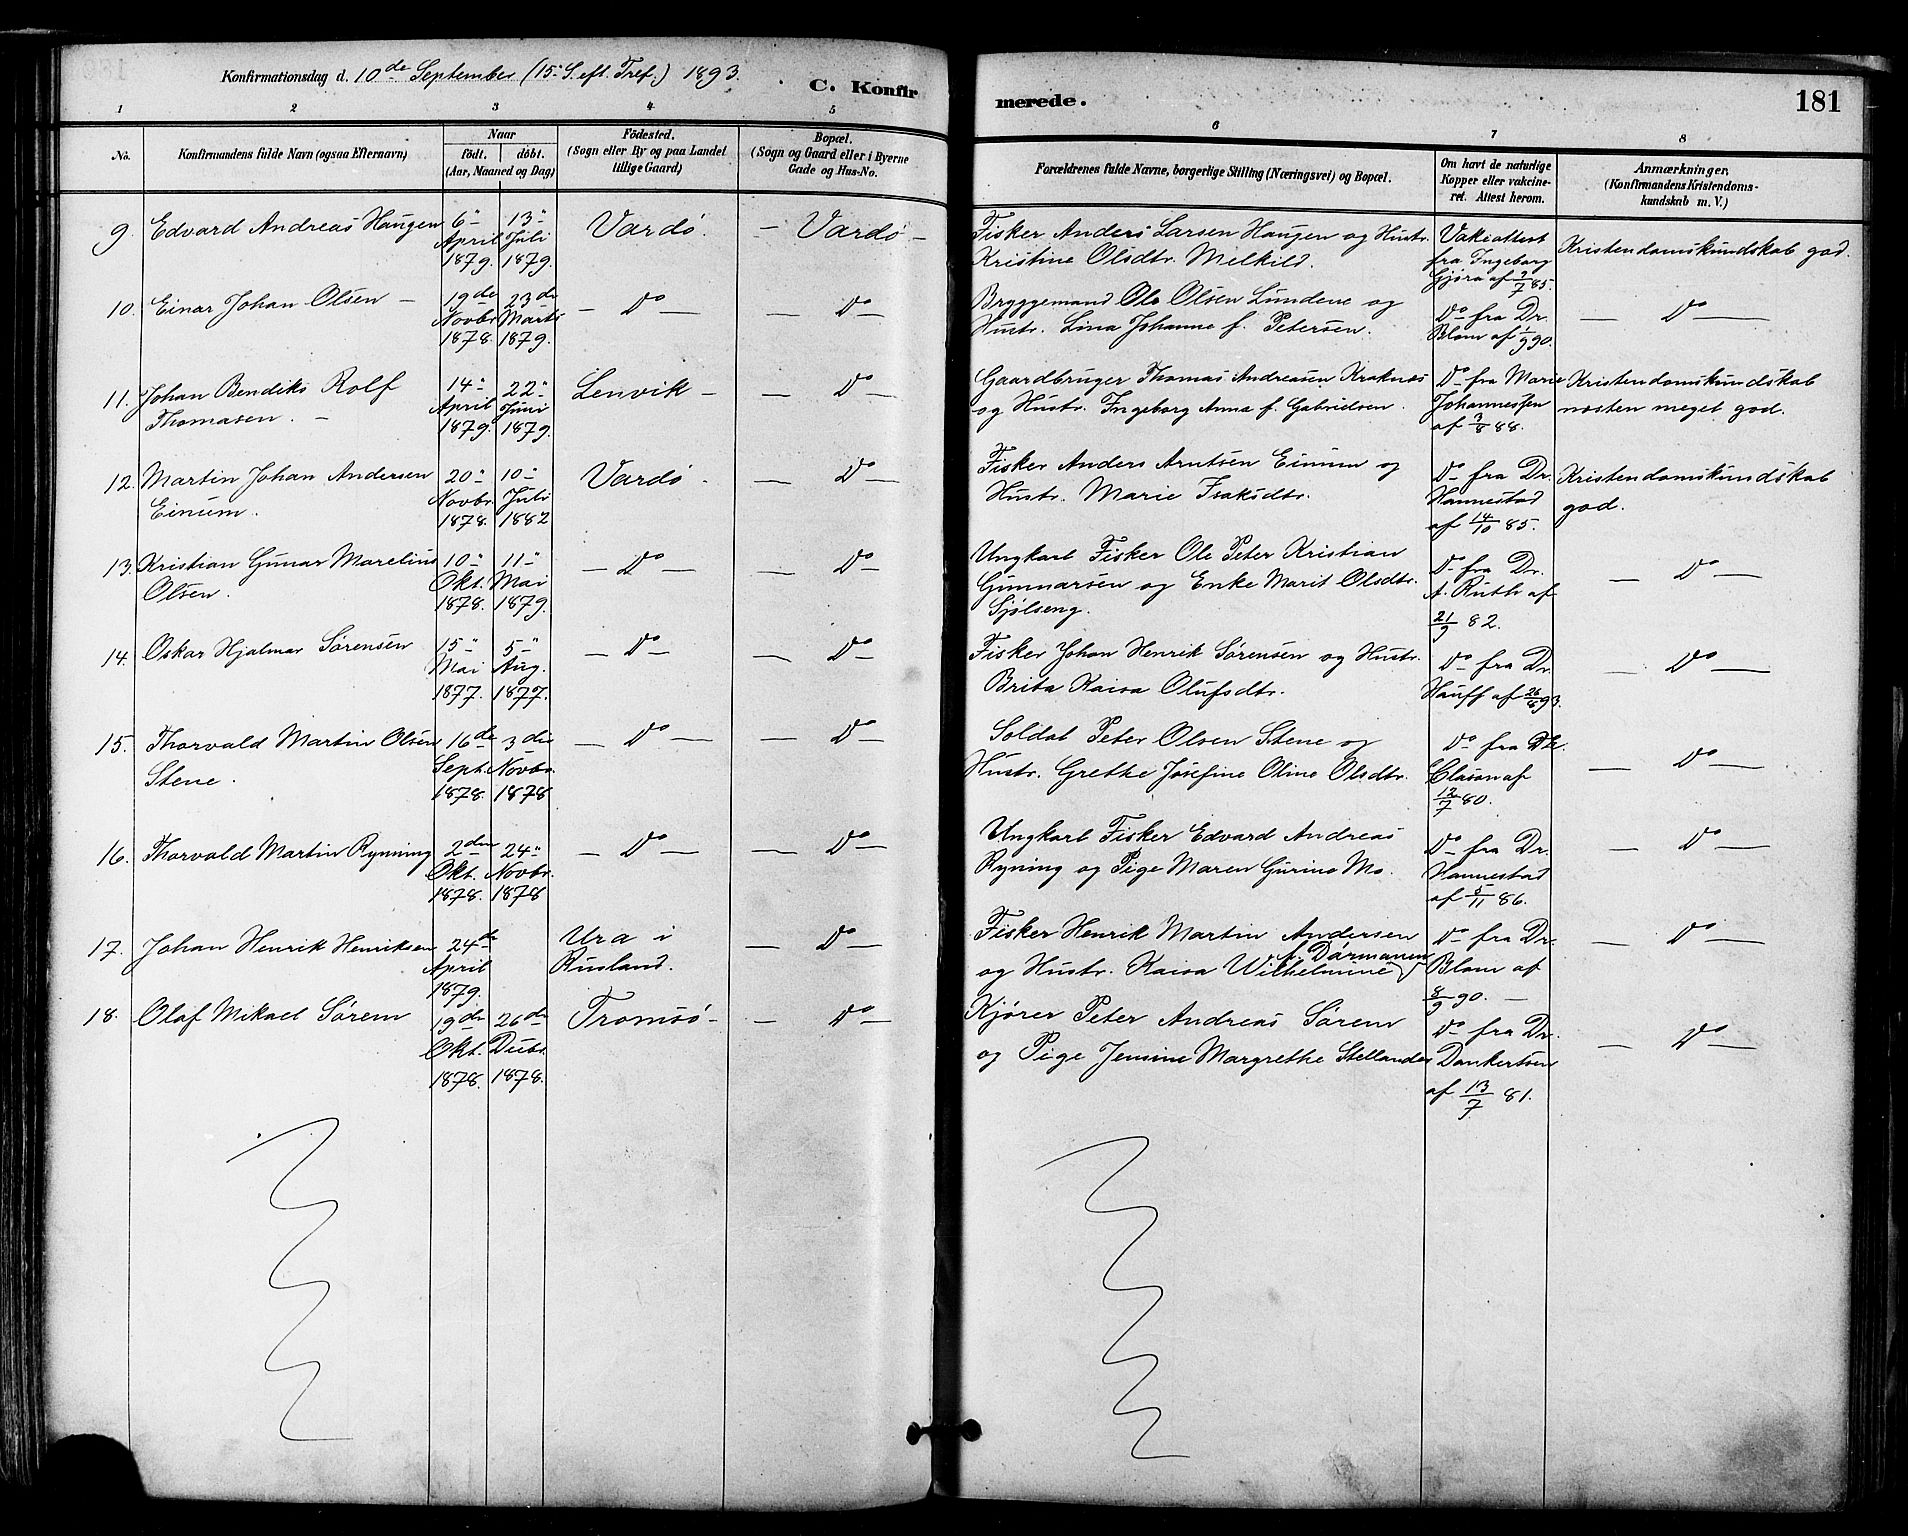 Konfirmationsdag d. 10de September (15. S. eft. Tref.) 1893.
C. Konfirmerede.
181
1 2 3 4 5 6 7 8
No.
Konfirmandens fulde Navn (ogsaa Efternavn)
Naar
födt. döbt.
(Aar, Maaned og Dag)
Födested.
(Sogn eller By og paa Landet
tillige Gaard)
Bopæl.
(Sogn og Gaard eller i Byerne
Gade og Hus-No.
Forældrenes fulde Navne, borgerlige Stilling (Næringsvei) og Bopæl.
Om havt de naturlige
Kopper eller vakcine-
ret. Attest herom.
Anmærkninger.
(Konfirmandens Kristendoms-
kundskab m. V.)
9. Edvard Andreas Haugen
6" April 1879.
13" Juli 1879.
Vardö.
— Vardö —
Fisker Anders Larsen Haugen og Hustr.
Kristine Olsdtr. Melkild.
Vakcattest
fra Ingeborg
Gjöra af 9/7 85.
Kristendomskundskab god.
10. Einar Johan Olsen —
19de Novbr. 1878.
23de Marts 1879.
— Do —
— Do —
Bryggemand Ole Olsen Lundene og
Hustr. Lina Johanne f. Petersen.
Do fra Dr.
Blom af 1/9 90.
— Do —
11. Johan Bendiks Rolf
Thomasen. —
14" April 1879.
22" Juni 1879.
Lenvik —
— Do —
Gaardbruger Thomas Andreasen Kraknæs
og Hustr. Ingeborg Anna f. Gabrielsen.
Do fra Marie
Johannessen
af 3/8 88.
Kristendomskundskab
næsten meget god.
12. Martin Johan Andersen
Einum.
20" Novbr. 1878.
10" Juli 1882
Vardö.
— Do —
Fisker Anders Arntsen Einum og
Hustr. Marie Isaksdtr.
Do fra Dr.
Hannestad
af 14/10 85.
Kristendomskundskab
god.
13. Kristian Gunar Marelius
Olsen.
10" Okt. 1878.
11" Mai 1879.
— Do —
— Do —
Ungkarl Fisker Ole Peter Kristian
Gunnarsen og Enke Marit Olsdtr.
Sjölseng.
Do fra Dr.
A. Ruth af
21/9 82.
— Do —
14. Oskar Hjalmar Sörensen
15" Mai 1877.
5" Aug. 1877.
— Do —
— Do —
Fisker Johan Henrik Sörensen og Hustr.
Brita Kaisa Olufsdtr.
Do fra Dr.
Hauff af 26/8 93.
— Do —
15. Thorvald Martin Olsen
Stene.
16de Sept. 1878.
3die Novbr. 1878
— Do —
— Do —
Soldat Peter Olsen Stene og
Hustr. Grethe Josefine Oline Olsdtr.
Do fra Dr.
Clason af
12/7 80.
— Do —
16. Thorvald Martin Rynning
2den Okt. 1878.
24" Novbr. 1878
— Do —
— Do —
Ungkarl Fisker Edvard Andreas
Ryning og Pige Maren Gurine Mo.
Do fra Dr.
Hannestad
af 5/11 86.
— Do —
17. Johan Henrik Henriksen
24de April 1879.
Ura i
Rusland.
— Do —
Fisker Henrik Martin Andersen
og Hustr. Kaisa Wilhelmine f. Dörmanen
Do fra Dr.
Blom af
8/9 90. —
— Do —
18. Olaf Mikael Sörem
19de Okt. 1878.
26de Dcbr. 1878.
Tromsö —
— Do —
Kjörer Peter Andreas Sörem
og Pige Jensine Margrethe Stellander
Do fra Dr.
Dankertsen
af 13/7 81.
— Do —